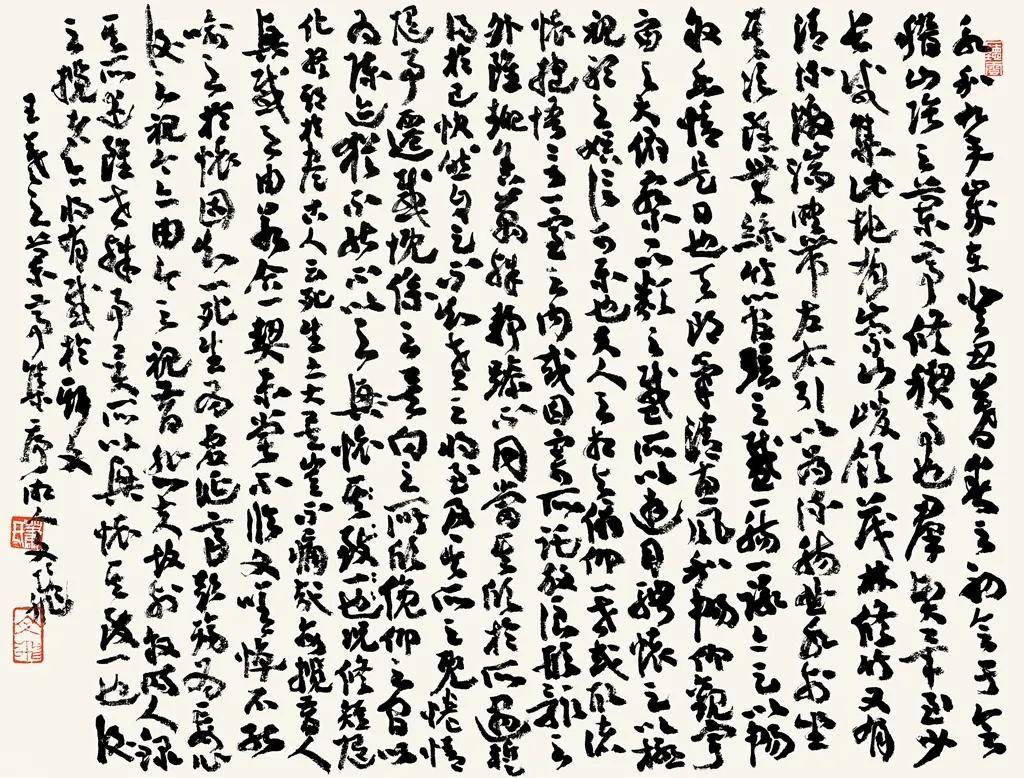 永和九年歲在癸丑暮春之初會于會
稽山陰之蘭亭修禊事也群賢畢至少
長咸集此地有崇山峻領茂林修竹又有
清流激湍映帶左右引以為流觴曲水列坐
其次雖無絲竹管弦之盛一觴一詠亦足以暢
敘幽情是日也天朗氣清惠風和暢仰觀宇
宙之大俯察品類之盛所以遊目騁懷足以極
視聽之娛信可樂也夫人之相與俯仰一世或取諸
懷抱悟言一室之內或因寄所託放浪形骸之
外雖趣舍萬殊靜躁不同當其欣於所遇暫
得於己快然自足不知老之將至及其所之既惓情
隨事遷感慨係之矣向之所欣俛仰之間以
為陳迹猶不能不以之興懷其致一也況修短隨
化終期於盡古人云死生亦大矣豈不痛哉每攬昔人
興感之由若合一契未嘗不臨文嗟悼不能
喻之於懷固知一死生為虛誕齊彭殤為妄
後之視今亦由今之視昔悲夫故列敘時人錄
其所述雖世殊事異所以興懷其致一也後
之攬者亦將有感於斯文
王羲之蘭亭集序